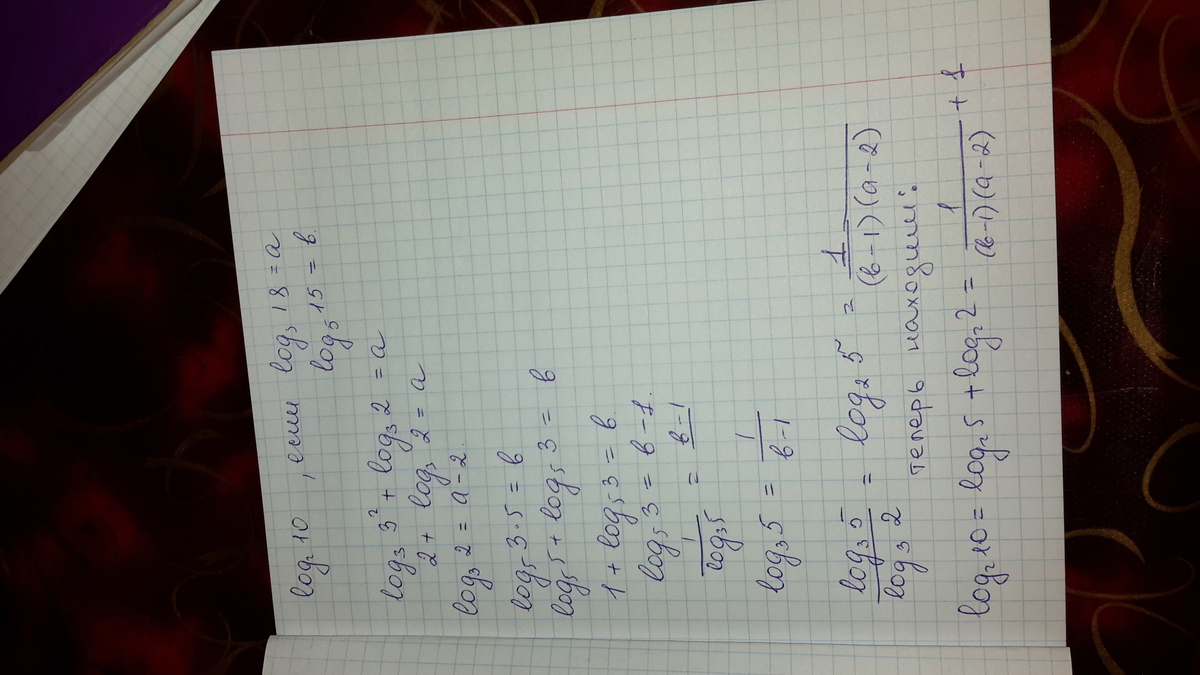 log₂10 , если log₃18 = a
log₅15 = в.
log₃3² + log₃2 = a
2 + log₃2 = a
log₃2 = a - 2.
log₅3·5 = в
log₅5 + log₅3 = в
1 + log₅3 = в.
log₅3 = в - 1.
1/log₃5 = в-1/
log₃5 = 1/(в-1)
log₃5/log₃2 = log₂5 = 1/((в-1)(a-2))
теперь находим:
log₂10 = log₂5 + log₂2 = 1/((в-1)(a-2)) + 1